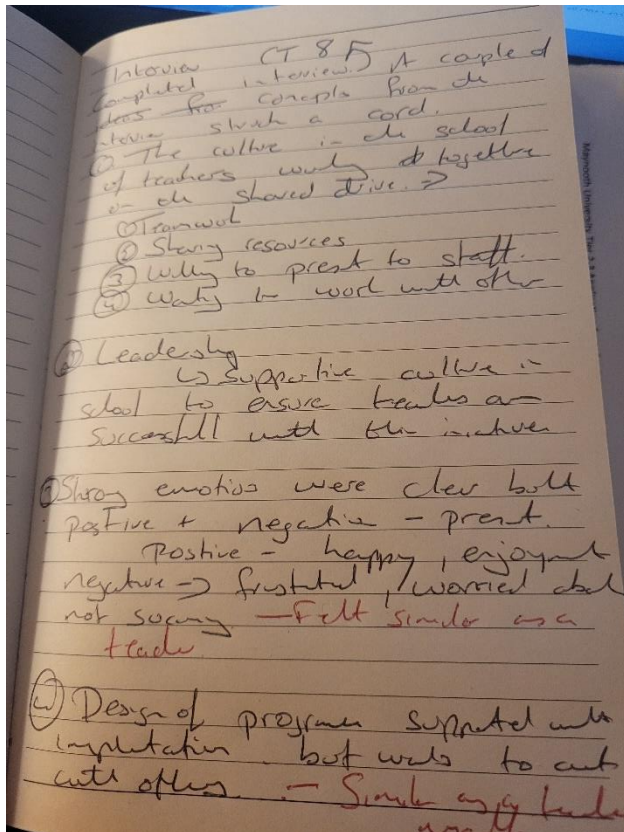 Interview CT 85
Completed interview. A couple of
ideas for concepts from the
interview struck a cord.
① The culture in the school
of teachers working together
on the shared drive. =>
① Teamwork
② Sharing resources
③ Willing to present to staff.
④ Wanting to work with other
② Leadership
↳ supportive culture in
school to ensure teachers are
successfull with the iniatives
③ Strong emotions were clear both
positive + negative - present.
Postive - happy, enjoyment
negative -> frustrated, worried about
not - Felt similar as a
teacher
④ Design of programme supported with
implentation but to
with others. - Similar as a teacher
Maynooth University